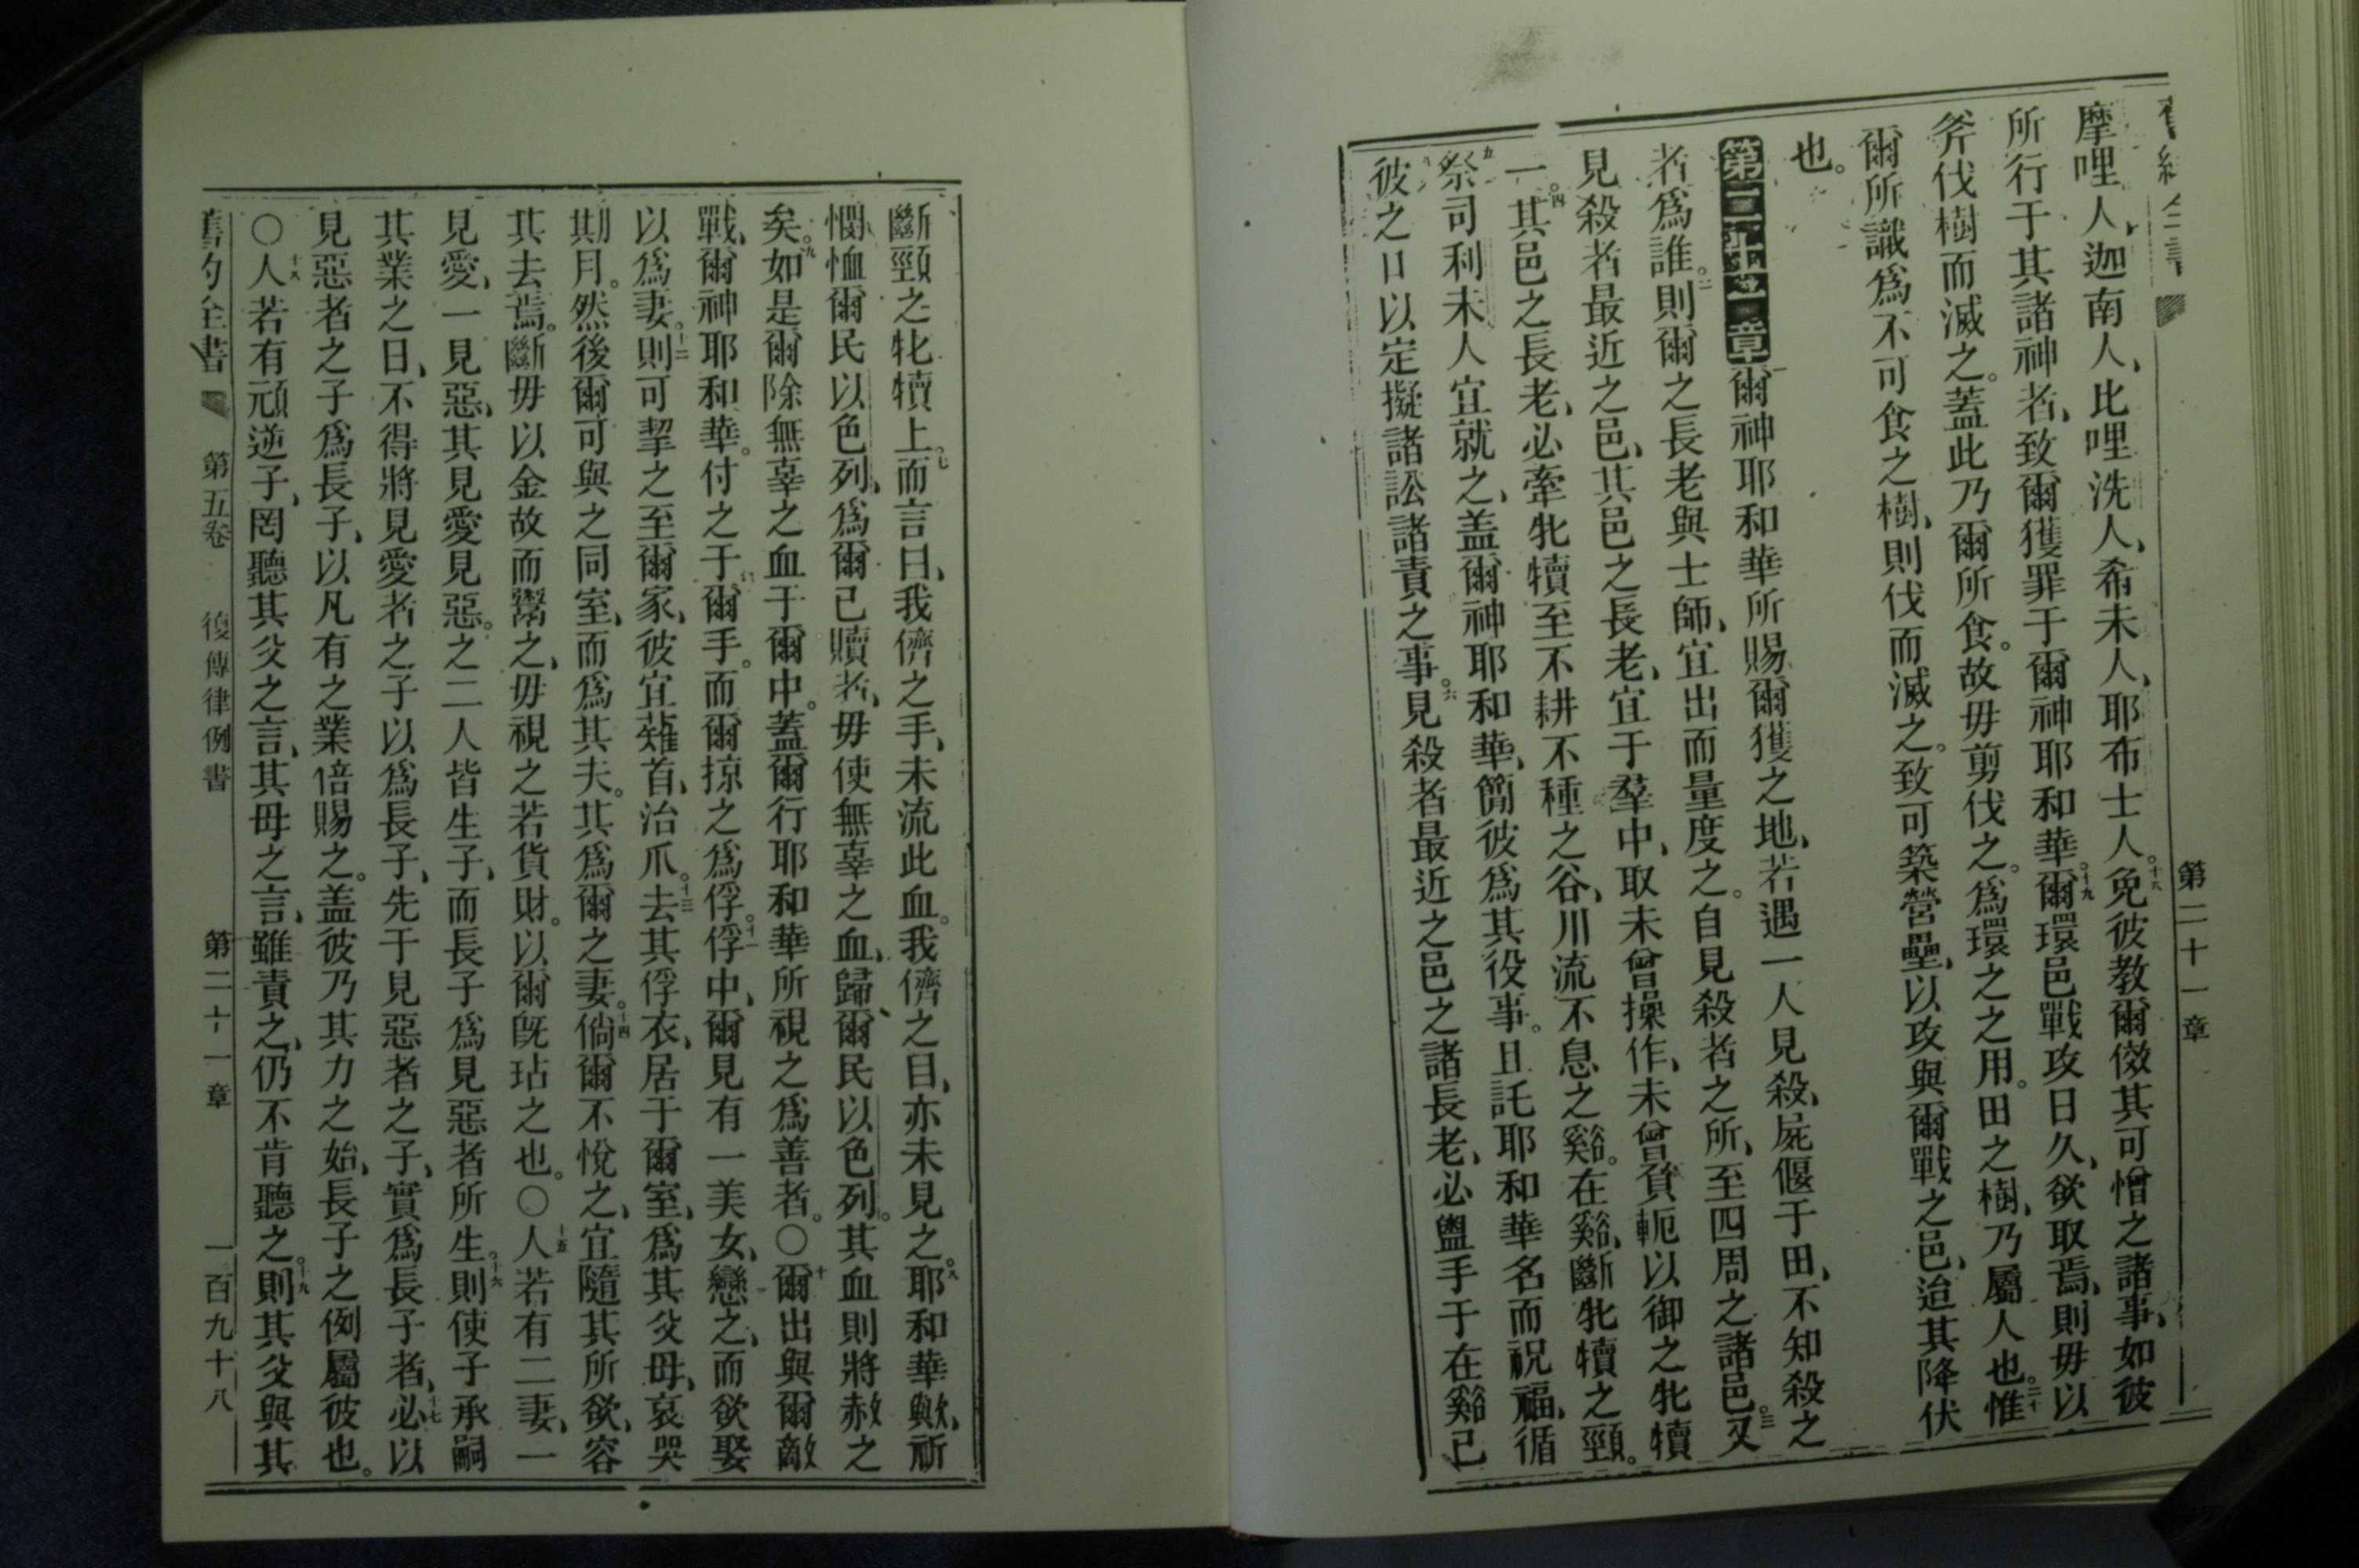 第二十一章
摩哩人、迦南人、比哩洗人、希未人、耶布士人。十八免彼教爾傚其可憎之諸事、如彼
所行于其諸神者、致爾獲罪于爾神耶和華。十九爾環邑戰攻日久、欲取焉、則毋以
斧伐樹而滅之。蓋此乃爾所食。故毋剪伐之。爲環之之用。田之樹、乃屬人也。二十惟
爾所識爲不可食之樹、則伐而滅之。致可築營壘、以攻與爾戰之邑、迨其降伏
也。
第二十一章一爾神耶和華所賜爾獲之地、若遇一人見殺、屍偃于田、不知殺之
者爲誰。二則爾之長老與士師、宜出而量度之。自見殺者之所、至四周之諸邑。三又
見殺者最近之邑、其邑之長老、宜于羣中、取未曾操作、未曾負軛以御之牝犢
一。四其邑之長老、必牽牝犢至不耕不種之谷、川流不息之谿。在谿、斷牝犢之頸。
五祭司利未人宜就之、盖爾神耶和華、簡彼爲其役事。且託耶和華名而祝福、循
彼之口以定擬諸訟諸責之事。六見殺者最近之邑之諸長老、必盥手于在谿已
斷頸之牝犢上。七而言曰、我儕之手、未流此血。我儕之目、亦未見之。八耶和華歟、祈
憫恤爾民以色列、爲爾已贖者、毋使無辜之血、歸爾民以色列。其血則將赦之
矣。九如是爾除無辜之血于爾中。蓋爾行耶和華所視之爲善者。○十爾出與爾敵
戰、爾神耶和華。付之于爾手。而爾掠之爲俘。十一俘中、爾見有一美女、戀之、而欲娶
以爲妻。十二則可挈之至爾家、彼宜薙首、治爪。十三去其俘衣、居于爾室、爲其父母、哀哭
期月。然後爾可與之同室、而爲其夫。其爲爾之妻。十四倘爾不悅之、宜隨其所欲、容
其去焉。斷毋以金故而鬻之、毋視之若貨財。以爾旣玷之也。○十五人若有二妻、一
見愛、一見惡、其見愛見惡。之二人皆生子、而長子爲見惡者所生。十六則使子承嗣
其業之日、不得將見愛者之子以爲長子、先于見惡者之子、實爲長子者、十七必以
見惡者之子爲長子、以凡有之業倍賜之。盖彼乃其力之始、長子之例屬彼也。
○十八人若有頑逆子、罔聽其父之言、其母之言、雖責之、仍不肯聽之。十九則其父與其
舊約全書　第五卷　復傳律例書　第二十一章　一百九十八